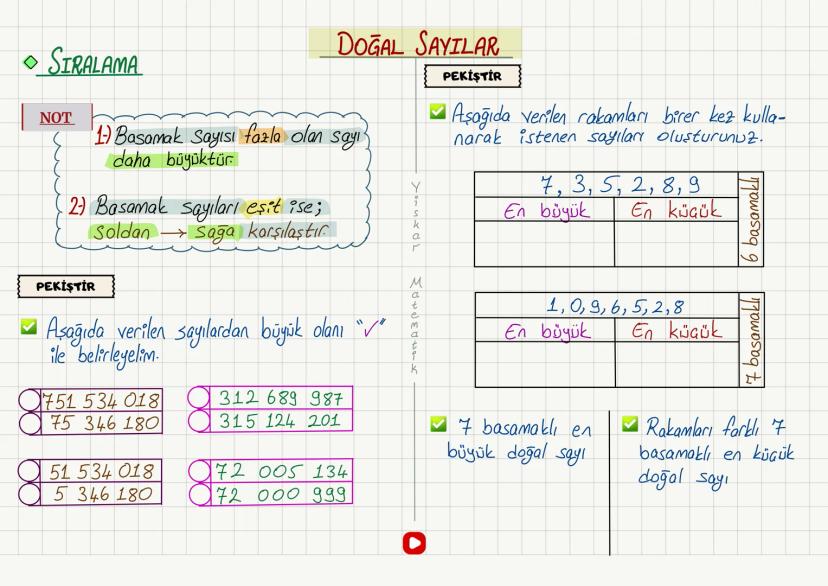 DOĞAL SAYILAR
SIRALAMA
NOT
1-) Basamak Sayısı fazla olan sayı
daha büyüktür.
2-) Basamak sayıları eşit ise;
soldan → sağa karşılaştır.
PEKİŞTİR
Aşağıda verilen sayılardan büyük olanı "✓"
ile belirleyelim.
751 534 018
75 346 180
312 689 987
315 124 201
51 534 018
5 346 180
72 005 134
72 000 999
Yiskar Matematik
PEKİŞTİR
Aşağıda verilen rakamları birer kez kulla-
narak istenen sayıları oluşturunuz.
7, 3, 5, 2, 8, 9
En büyük En küçük
6 basamaklı
1, 0, 9, 6, 5, 2, 8
En büyük En küçük
7 basamaklı
7 basamaklı en
büyük doğal sayı
Rakamları farklı 7
basamaklı en küçük
doğal sayı